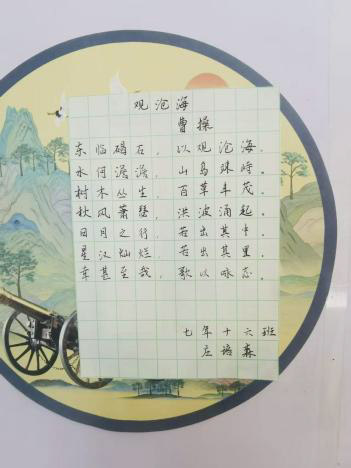 观沧海
曹操
东临碣石,以观沧海。
水何澹澹,山岛竦峙。
树木丛生,百草丰茂。
秋风萧瑟,洪波涌起。
日月之行,若出其中。
星汉灿烂,若出其里。
幸甚至哉,歌以咏志。
七年十六班
庄语森